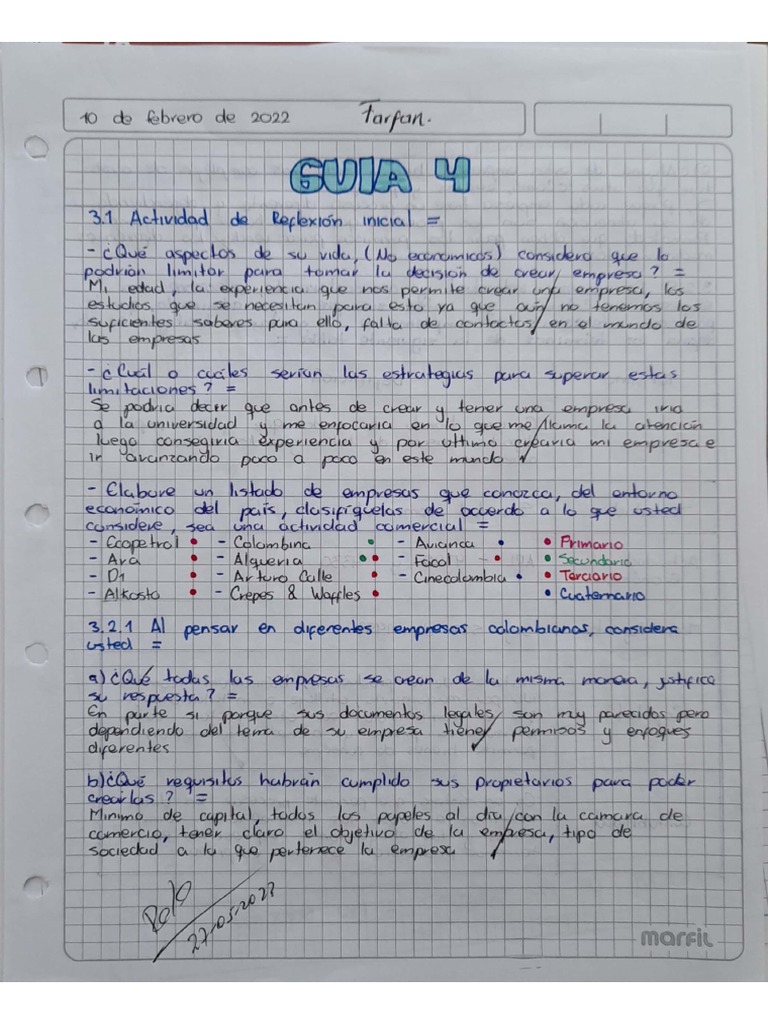 10 de febrero de 2022 Farfan.
GUIA 4
3.1 Actividad de Reflexión inicial =
- ¿Qué aspectos de su vida, (No económicos) considera que lo
podrían limitar para tomar la decisión de crear empresa? =
Mi edad, la experiencia que nos permite crear una empresa, los
estudios que se necesitan para esto ya que aún no tenemos los
suficientes saberes para ello, falta de contactos en el mundo de
las empresas
- ¿Cuál o cuáles serían las estrategias para superar estas
limitaciones? =
Se podria decir que antes de crear y tener una empresa iria
a la universidad y me enfocaria en lo que me llama la atención
luego conseguiria experiencia y por ultimo crearia mi empresa e
ir avanzando poco a poco en este mundo
- Elabore un listado de empresas que conozca, del entorno
económico del país, clasifíquelas de acuerdo a lo que usted
considere, sea una actividad comercial =
- Ecopetrol • - Colombina • - Avianca • • Primario
- Ara • - Alqueria • • - Facol • • Secundario
- D1 • - Arturo Calle • - Cinecolombia • • Terciario
- Alkosto • - Crepes & Waffles • • Cuaternario
3.2.1 Al pensar en diferentes empresas colombianas, considera
usted =
a) ¿Qué todas las empresas se crean de la misma manera, justifica
su respuesta? =
En parte si porque sus documentos legales son muy parecidos pero
dependiendo del tema de su empresa tiene permisos y enfoques
diferentes
b) ¿Qué requisitos habrán cumplido sus propietarios para poder
crearlas? =
Minimo de capital, todos los papeles al dia con la camara de
comercio, tener claro el objetivo de la empresa, tipo de
sociedad a la que pertenece la empresa
27-05-2022
marfil